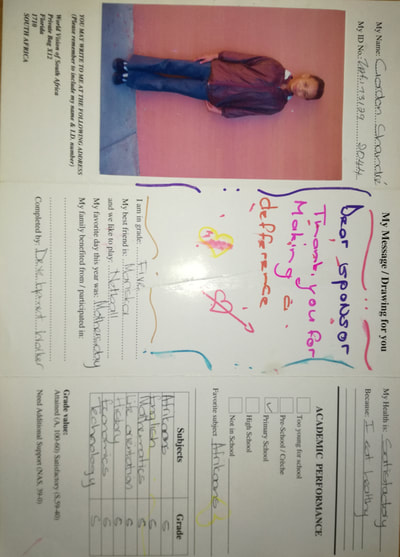 My Name:
My ID No.:
YOU MAY WRITE TO ME AT THE FOLLOWING ADDRESS
(Please remember to include my name & I.D. number)
World Vision of South Africa
Private Bag X12
Florida
1710
SOUTH AFRICA
My Message / Drawing for you
Dear sponsor
Thank you for
Making a
defference
I am in grade: Five
My best friend is:
and we like to play: Netball
My favorite day this year was: Mothersday
My family benefited from / participated in:
Completed by: Development Worker
My Health is: Satisfactory
Because: I eat healthy
ACADEMIC PERFORMANCE
Too young for school
Pre-School / Crèche
Primary School ✓
High School
Not in School
Favorite subject: Afrikaans
Subjects Grade
Afrikaans S
English S
Mathematics S
Life orientation S
History S
Economics S
Technology S
Grade value:
Attained (A, 100-60) Satisfactory (S,59-40)
Need Additional Support (NAS, 39-0)